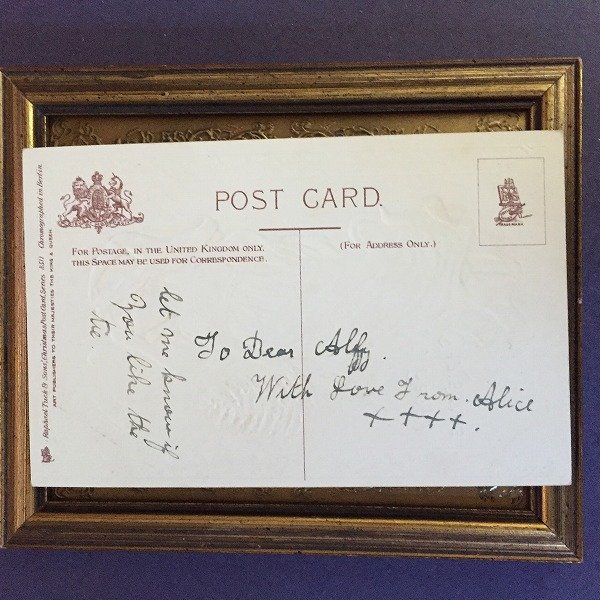 POST CARD.
FOR POSTAGE, IN THE UNITED KINGDOM ONLY,
THIS SPACE MAY BE USED FOR CORRESPONDENCE.
(FOR ADDRESS ONLY.)
TRADE MARK.
Raphael Tuck & Sons' Christmas Post Card, Series Chromographed in Berlin.
ART PUBLISHERS TO THEIR MAJESTIES THE KING & QUEEN
let me know if
You like the
tie.
To Dear Alf
With Love From Alice
++++.